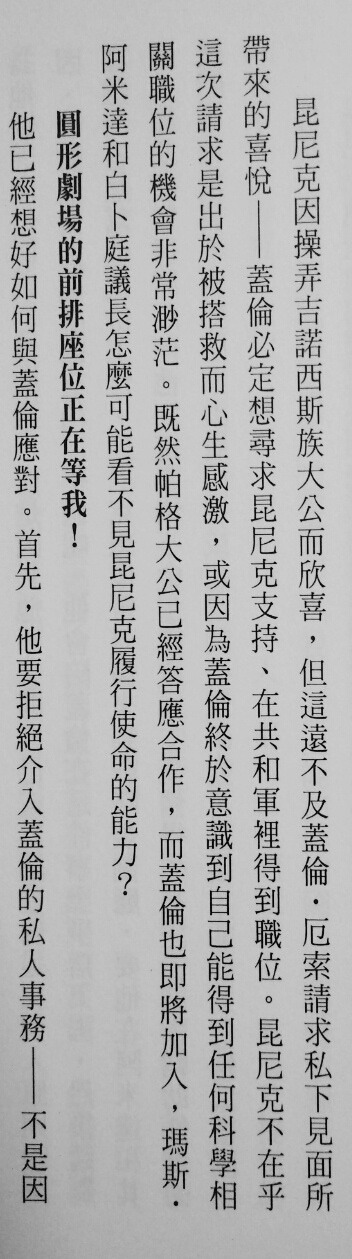 昆尼克因操弄吉諾西斯族大公而欣喜，但這遠不及蓋倫．厄索請求私下見面所
帶來的喜悅——蓋倫必定想尋求昆尼克支持、在共和軍裡得到職位。昆尼克不在乎
這次請求是出於被搭救而心生感激，或因為蓋倫終於意識到自己能得到任何科學相
關職位的機會非常渺茫。既然帕格大公已經答應合作，而蓋倫也即將加入，瑪斯．
阿米達和白卜庭議長怎麼可能看不見昆尼克履行使命的能力？
圓形劇場的前排座位正在等我！
他已經想好如何與蓋倫應對。首先，他要拒絕介入蓋倫的私人事務——不是因